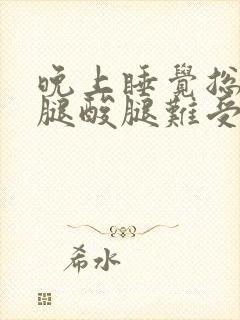 晚上睡覺總
腿酸腿難受
希水